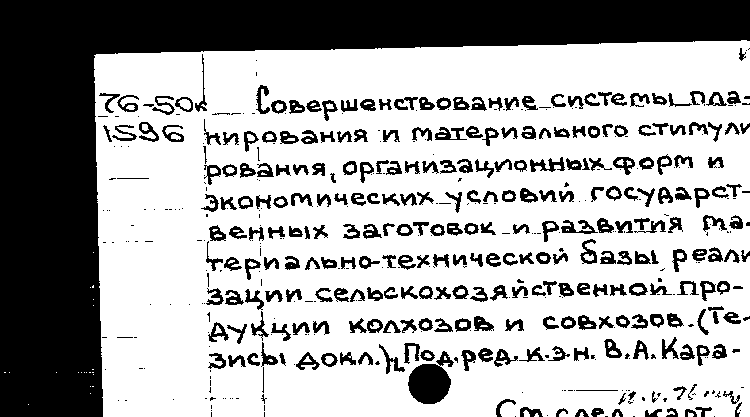 76-50к Совершенствование системы пла-
1596 нирования и материального стимули
рования, организационных форм и
экономических условий государст-
венных заготовок и развития ма-
териально-технической базы реали
зации сельскохозяйственной про-
дукции колхозов и совхозов. (Те-
зисы докл.), Под. ред. к.э.н. В.А. Кара-
См. след. карт.